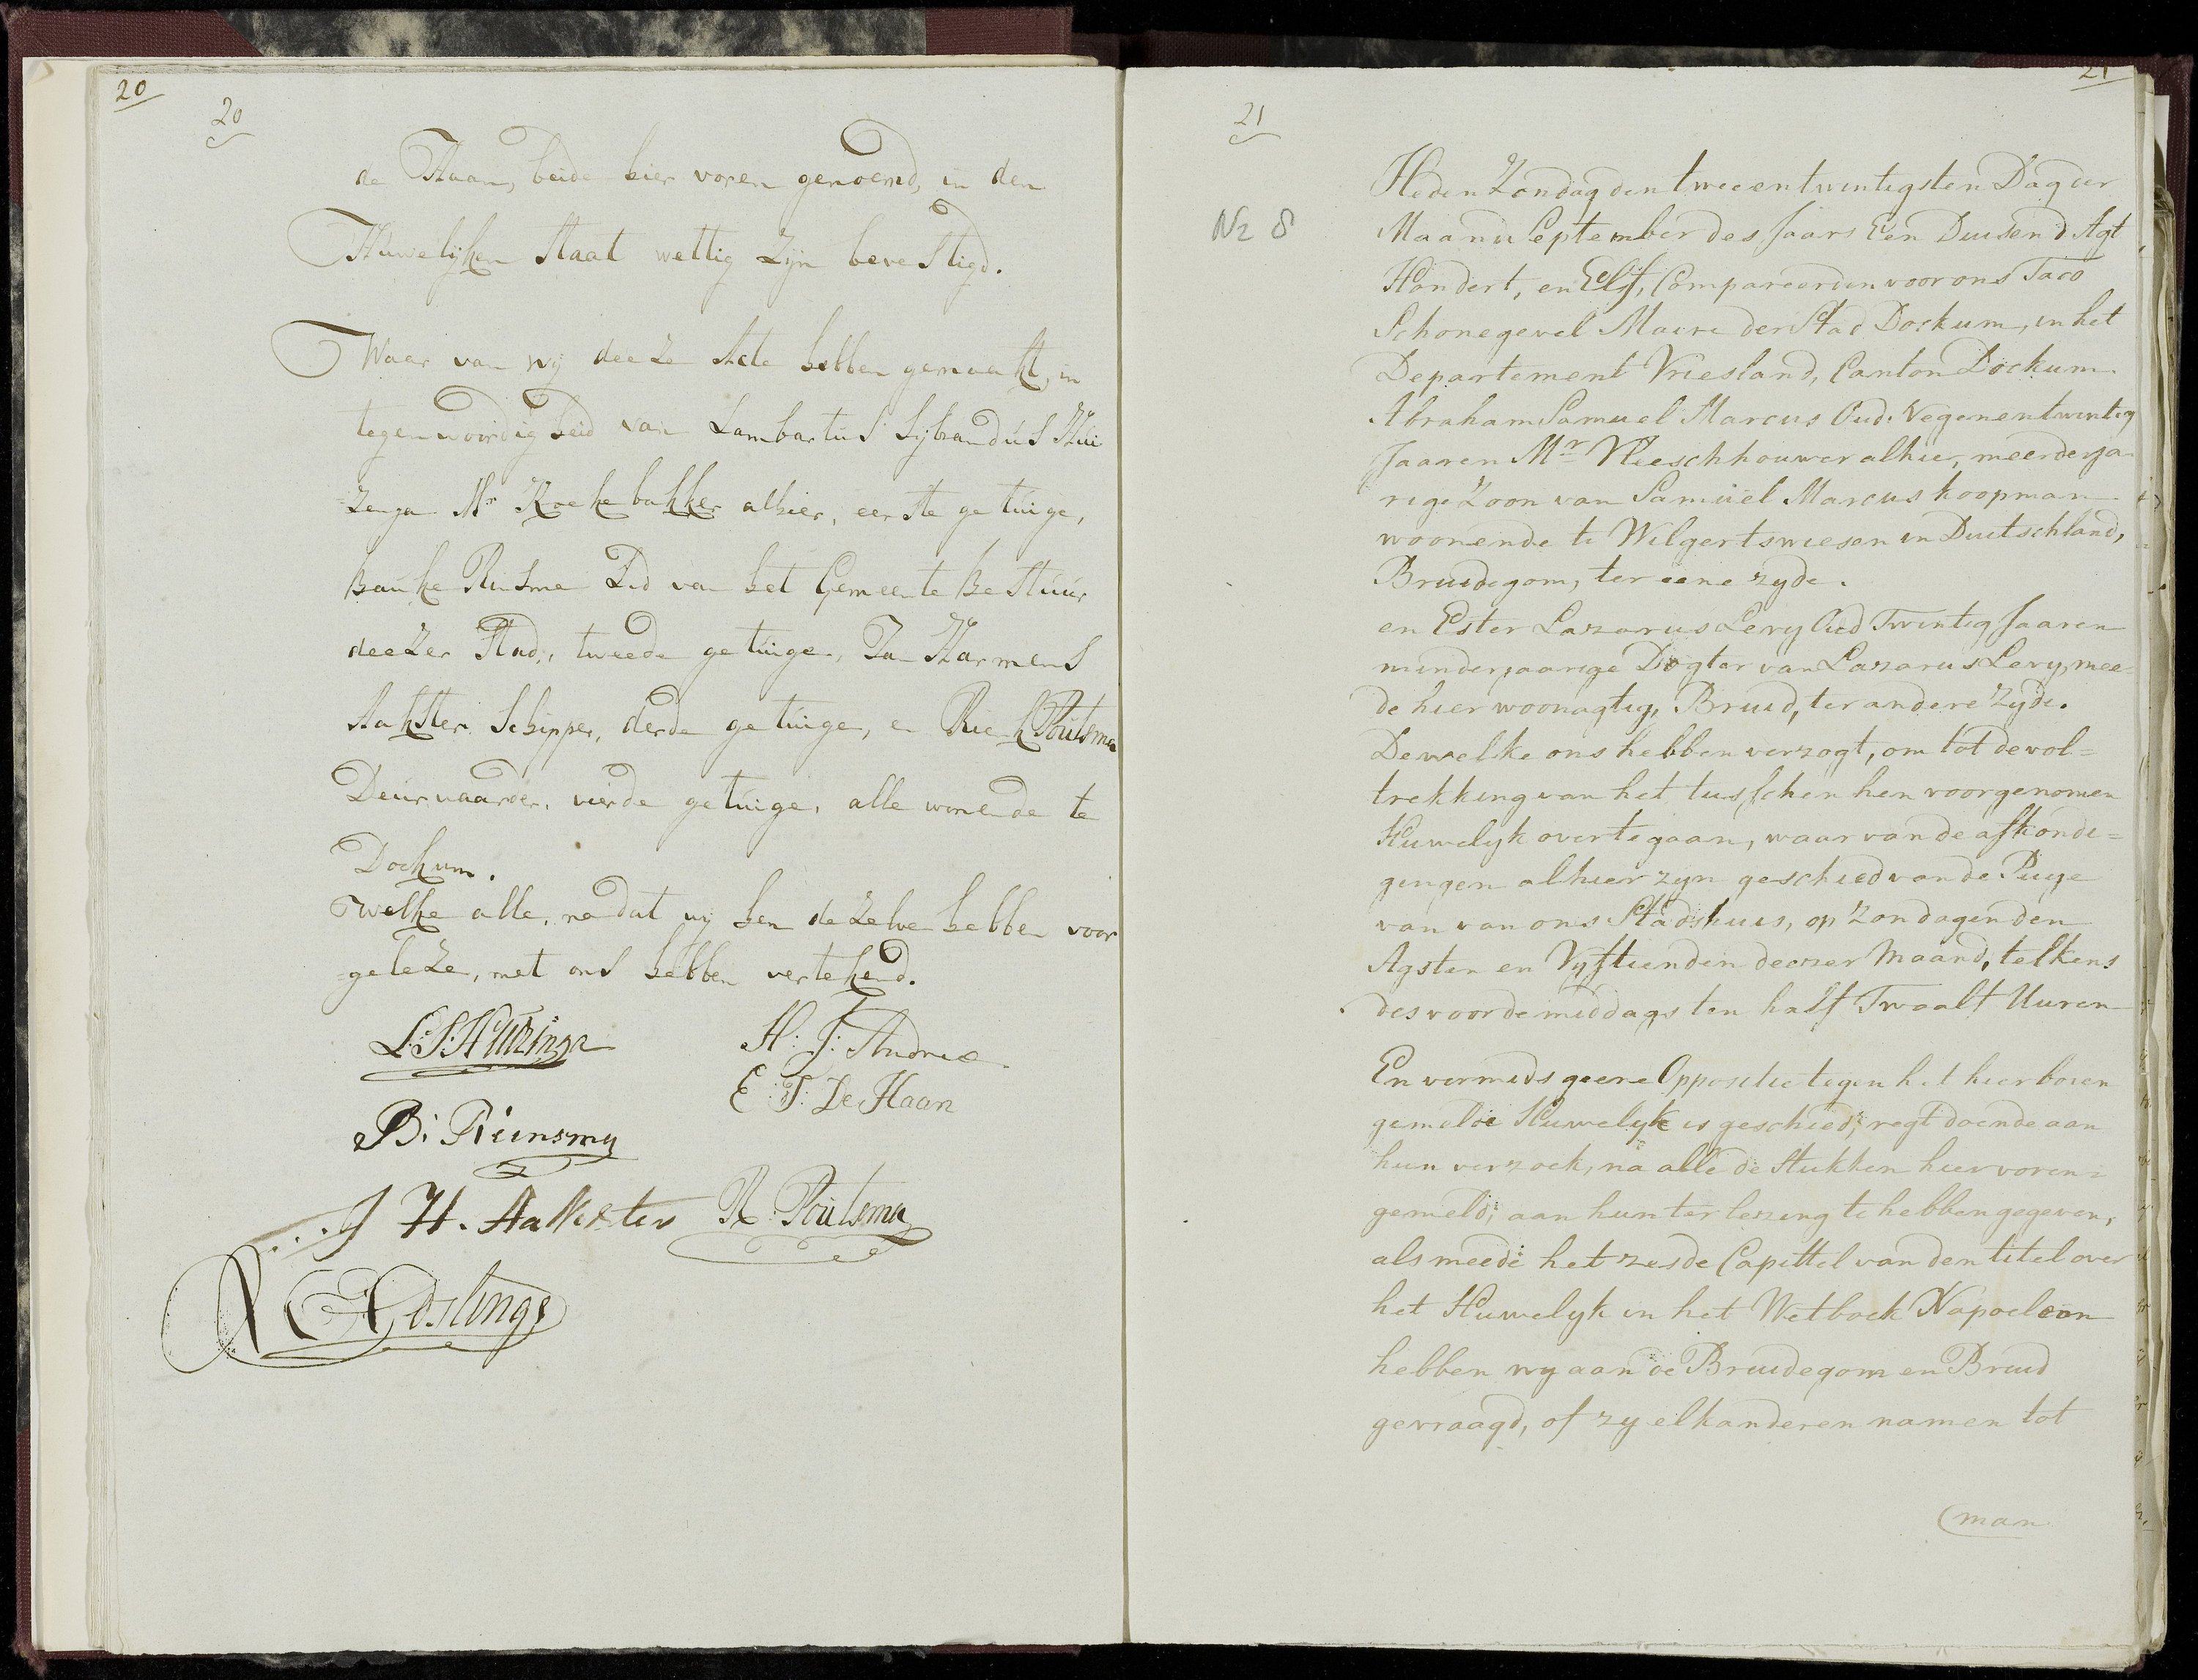 20
20
de Haan, beide hier voren genoemd, in den
Huwelijken Staat wettig Zijn bevestigd.
Waar van wij deeze Acte hebben gemaakt, in
tegenwoordigheid van Lambartus Sijbrandus Hui
=zenga Mr Koekebakker alhier, eerste getuige,
Bauke Rinsma Lid van het Gemeente Bestuur
deezer Stad, tweede getuige, Jan Harmens
Aakster Schipper, derde getuige, en Rienk Poutsma
Deurvaarder, vierde getuige, alle wonende te
Dockum.
welke alle, nadat wij hen dezelve hebben voor
=geleze, met ons hebben vertekend.
L: S: Huizinga
H: J: Andree
E: T: De Haan
B: Reinsma
J H. Aakster
R: Poutsma
21
21
No 8
Heden Zondag den twee en twintigsten Dag der
Maand September des Jaars Een Duisend Agt
Hondert, en Elf, Compareerden voor ons Taco
Schonegevel Maire der Stad Dockum, in het
Departement Vriesland, Canton Dockum.
Abraham Samuel Marcus Oud. Negenentwintig
Jaaren Mr Vleeschhouwer alhier, meerderja
rige Zoon van Samuel Marcus koopman
woonende te Wilgertswiesen in Duitschland,
Bruidegom, ter eene zyde.
en Ester Lazarus Levy Oud Twintig Jaaren
minderjaarige Dogter van Lazarus Levy, mee=
de hier woonagtig, Bruid, ter andere Zyde.
Dewelke ons hebben verzogt, om tot de vol=
trekking van het tusschen hen voorgenomen
Huwelyk over te gaan, waar van de afkondi=
gingen alhier zyn geschied van de Puije
van van ons Stadshuis, op Zondagen den
Agsten en Vyftienden deezer Maand, telkens
des voordemiddags ten half Twaalf Uuren
En vermids geene Oppositie tegen het hier boven
gemelde Huwelyk is geschied; regt doende aan
hun verzoek, na alle de Stukken hier voren=
gemeld; aan hun ter lezing te hebben gegeven,
als meede het zesde Capittel van den titel over
het Huwelyk in het Wetboek Napoleon
hebben wy aan de Bruidegom en Bruid
gevraagd, of zy elkanderen namen tot
(man